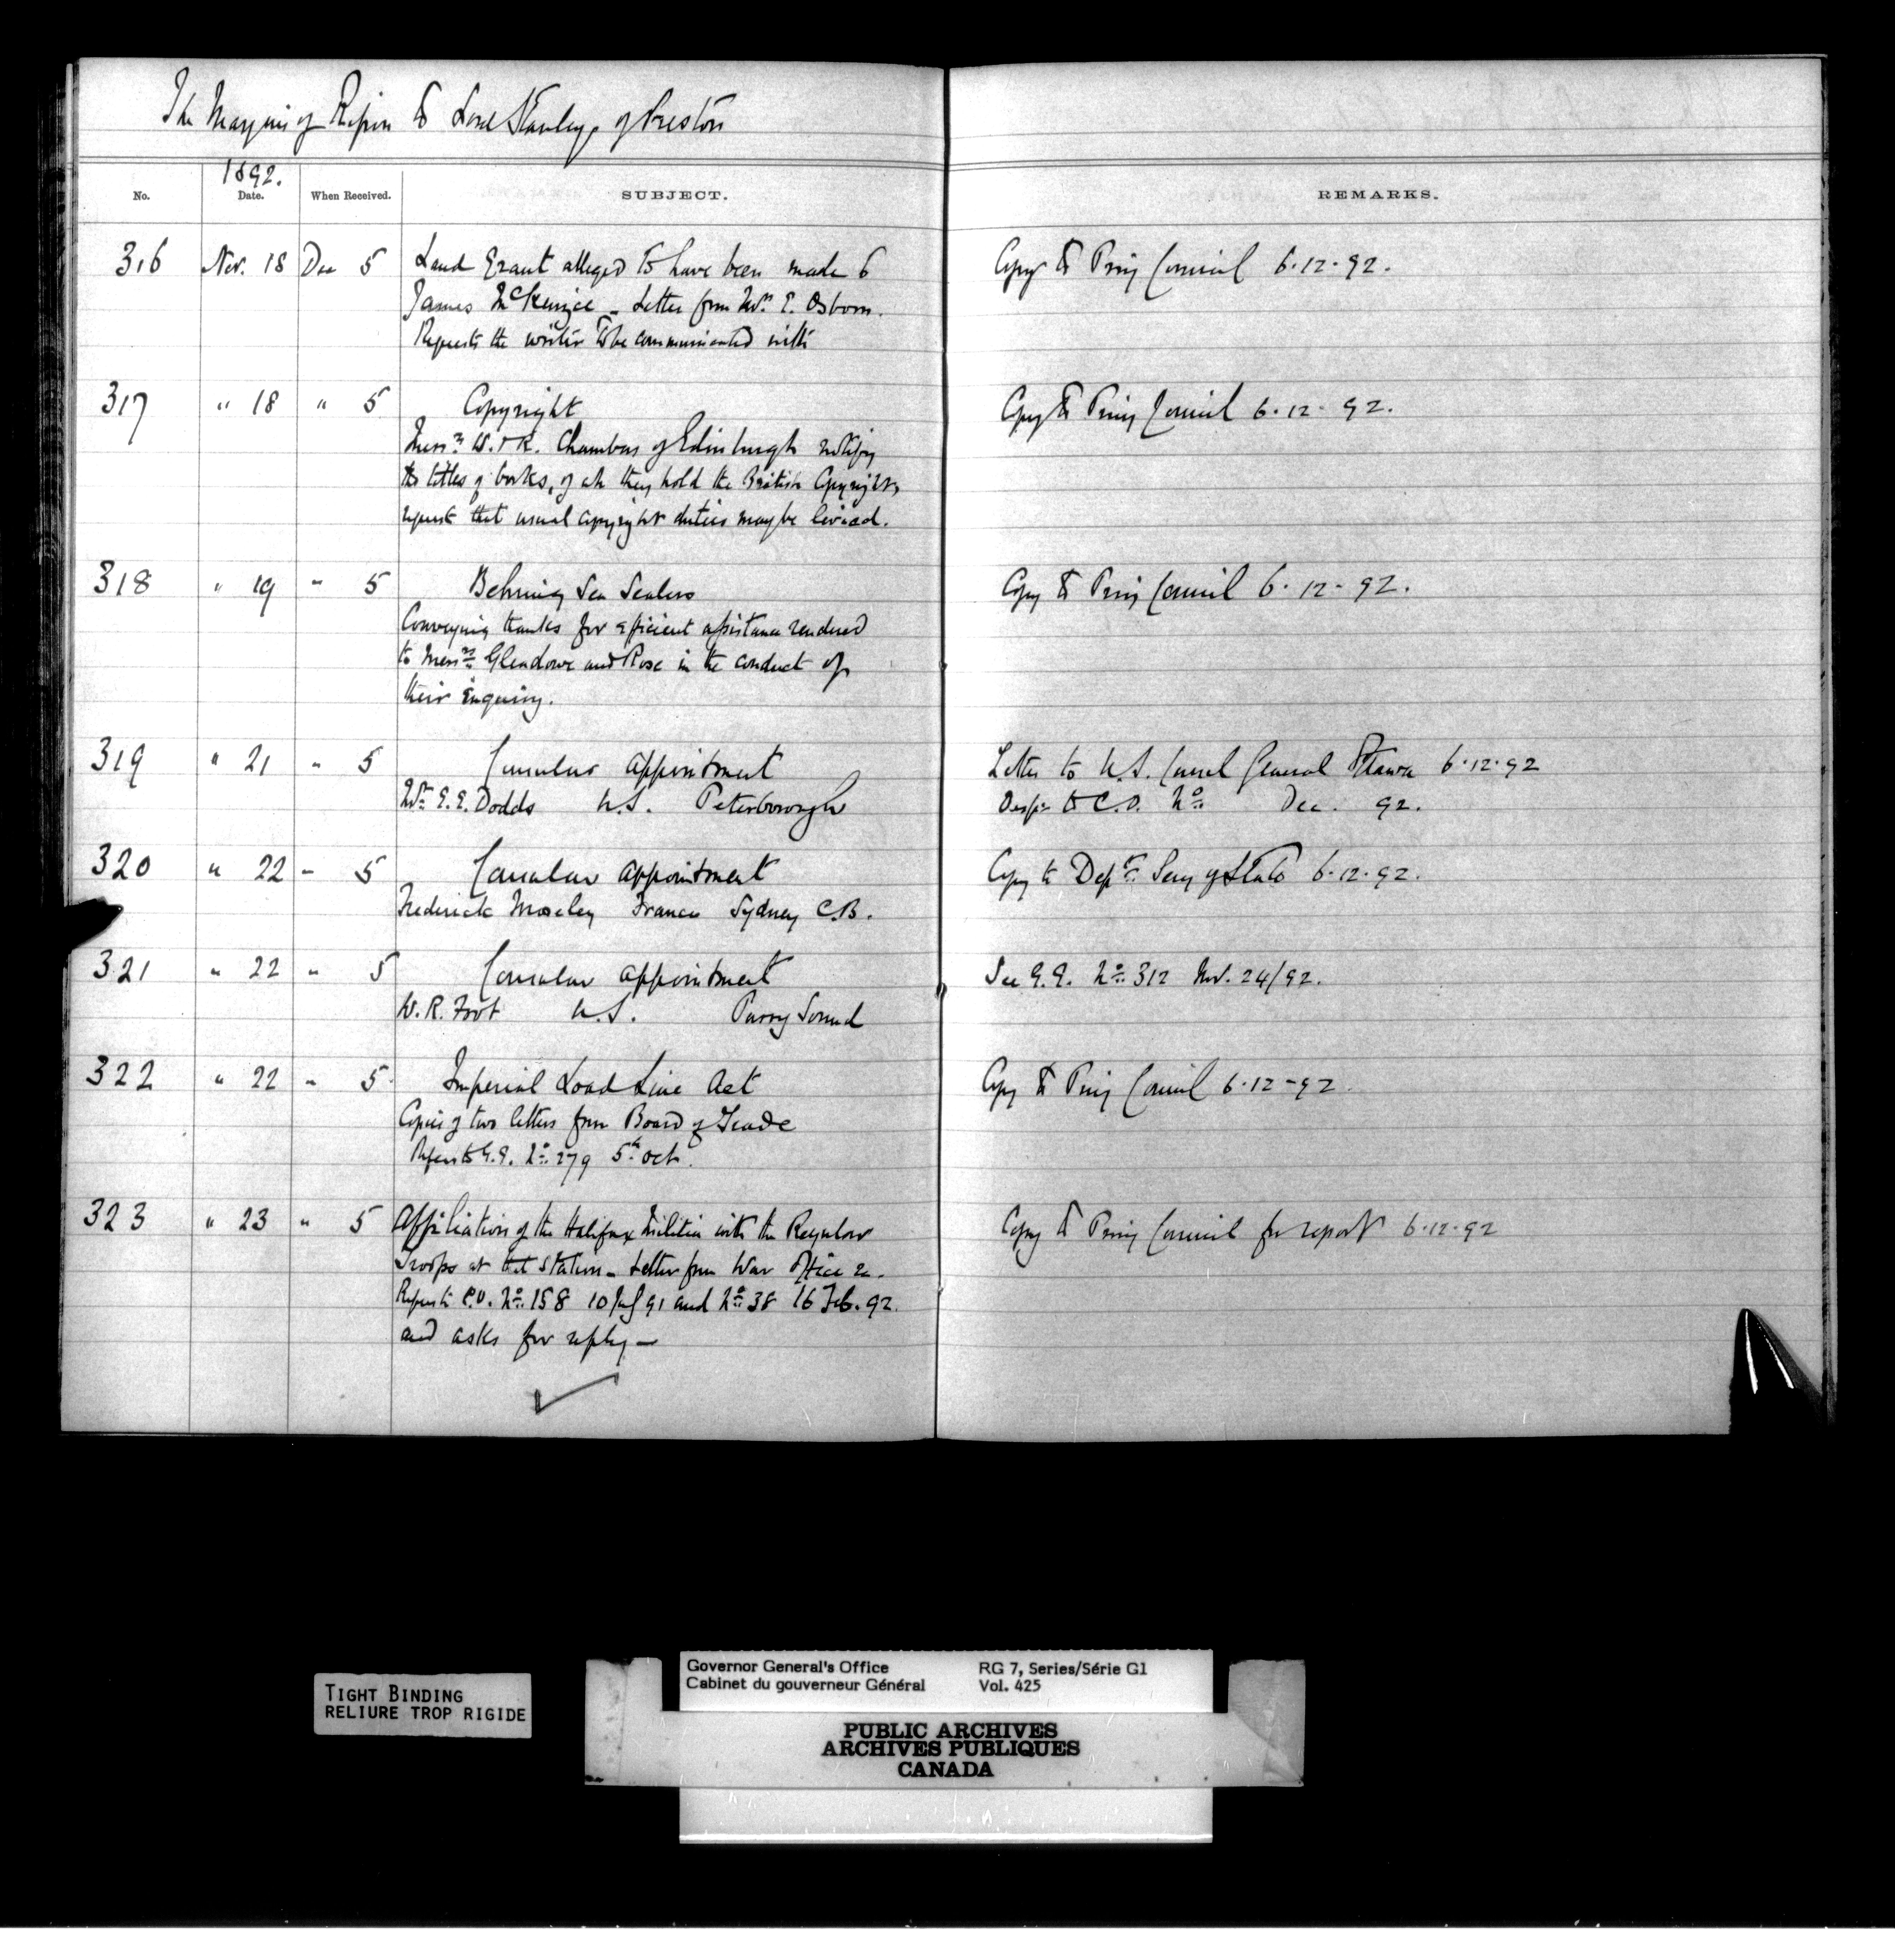 The Marquis of Ripon to Lord Stanley of Preston
1892.
No. Date. When Received. SUBJECT. REMARKS.
316 Nov. 18 Dec 5 Land Grant alleged to have been made to Copy to Privy Council 6.12.92.
James McKenzie - Letter from Wm. E. Osborn.
Requests the writer to be communicated with
317 " 18 " 5 Copyright Copy to Privy Council 6.12.92.
Messrs. W. & R. Chambers of Edinburgh notify
the titles of books, of wh they hold the British Copyright,
request that usual copyright duties may be levied.
318 " 19 " 5 Behring Sea Sealers Copy to Privy Council 6.12.92.
Conveying thanks for efficient assistance rendered
to Messrs. Glendowe and Rose in the conduct of
their inquiry.
319 " 21 " 5 Consular appointment Letter to U.S. Consul General Ottawa 6.12.92
Wm. E. E. Dodds U.S. Peterborough Desp: to C.O. No. Dec. 92.
320 " 22 " 5 Consular appointment Copy to Dept. Secy of State 6.12.92.
Frederick Moseley France Sydney C.B.
321 " 22 " 5 Consular appointment See G.G. No. 312 Nov. 24/92.
W. R. Foot U.S. Parry Sound
322 " 22 " 5 Imperial Load Line Act Copy to Privy Council 6.12-92.
Copies of two letters from Board of Trade
Refers to G.G. No. 279 5th Oct.
323 " 23 " 5 Affiliation of the Halifax Militia with the Regular Copy to Privy Council for report 6.12.92
Troops at that Station - Letter from War Office
Refers to C.O. No. 158 10 91 and No. 38 16 Feb. 92.
and asks for reply -
TIGHT BINDING
RELIURE TROP RIGIDE
Governor General's Office RG 7, Series/Série G1
Cabinet du gouverneur Général Vol. 425
PUBLIC ARCHIVES
ARCHIVES PUBLIQUES
CANADA